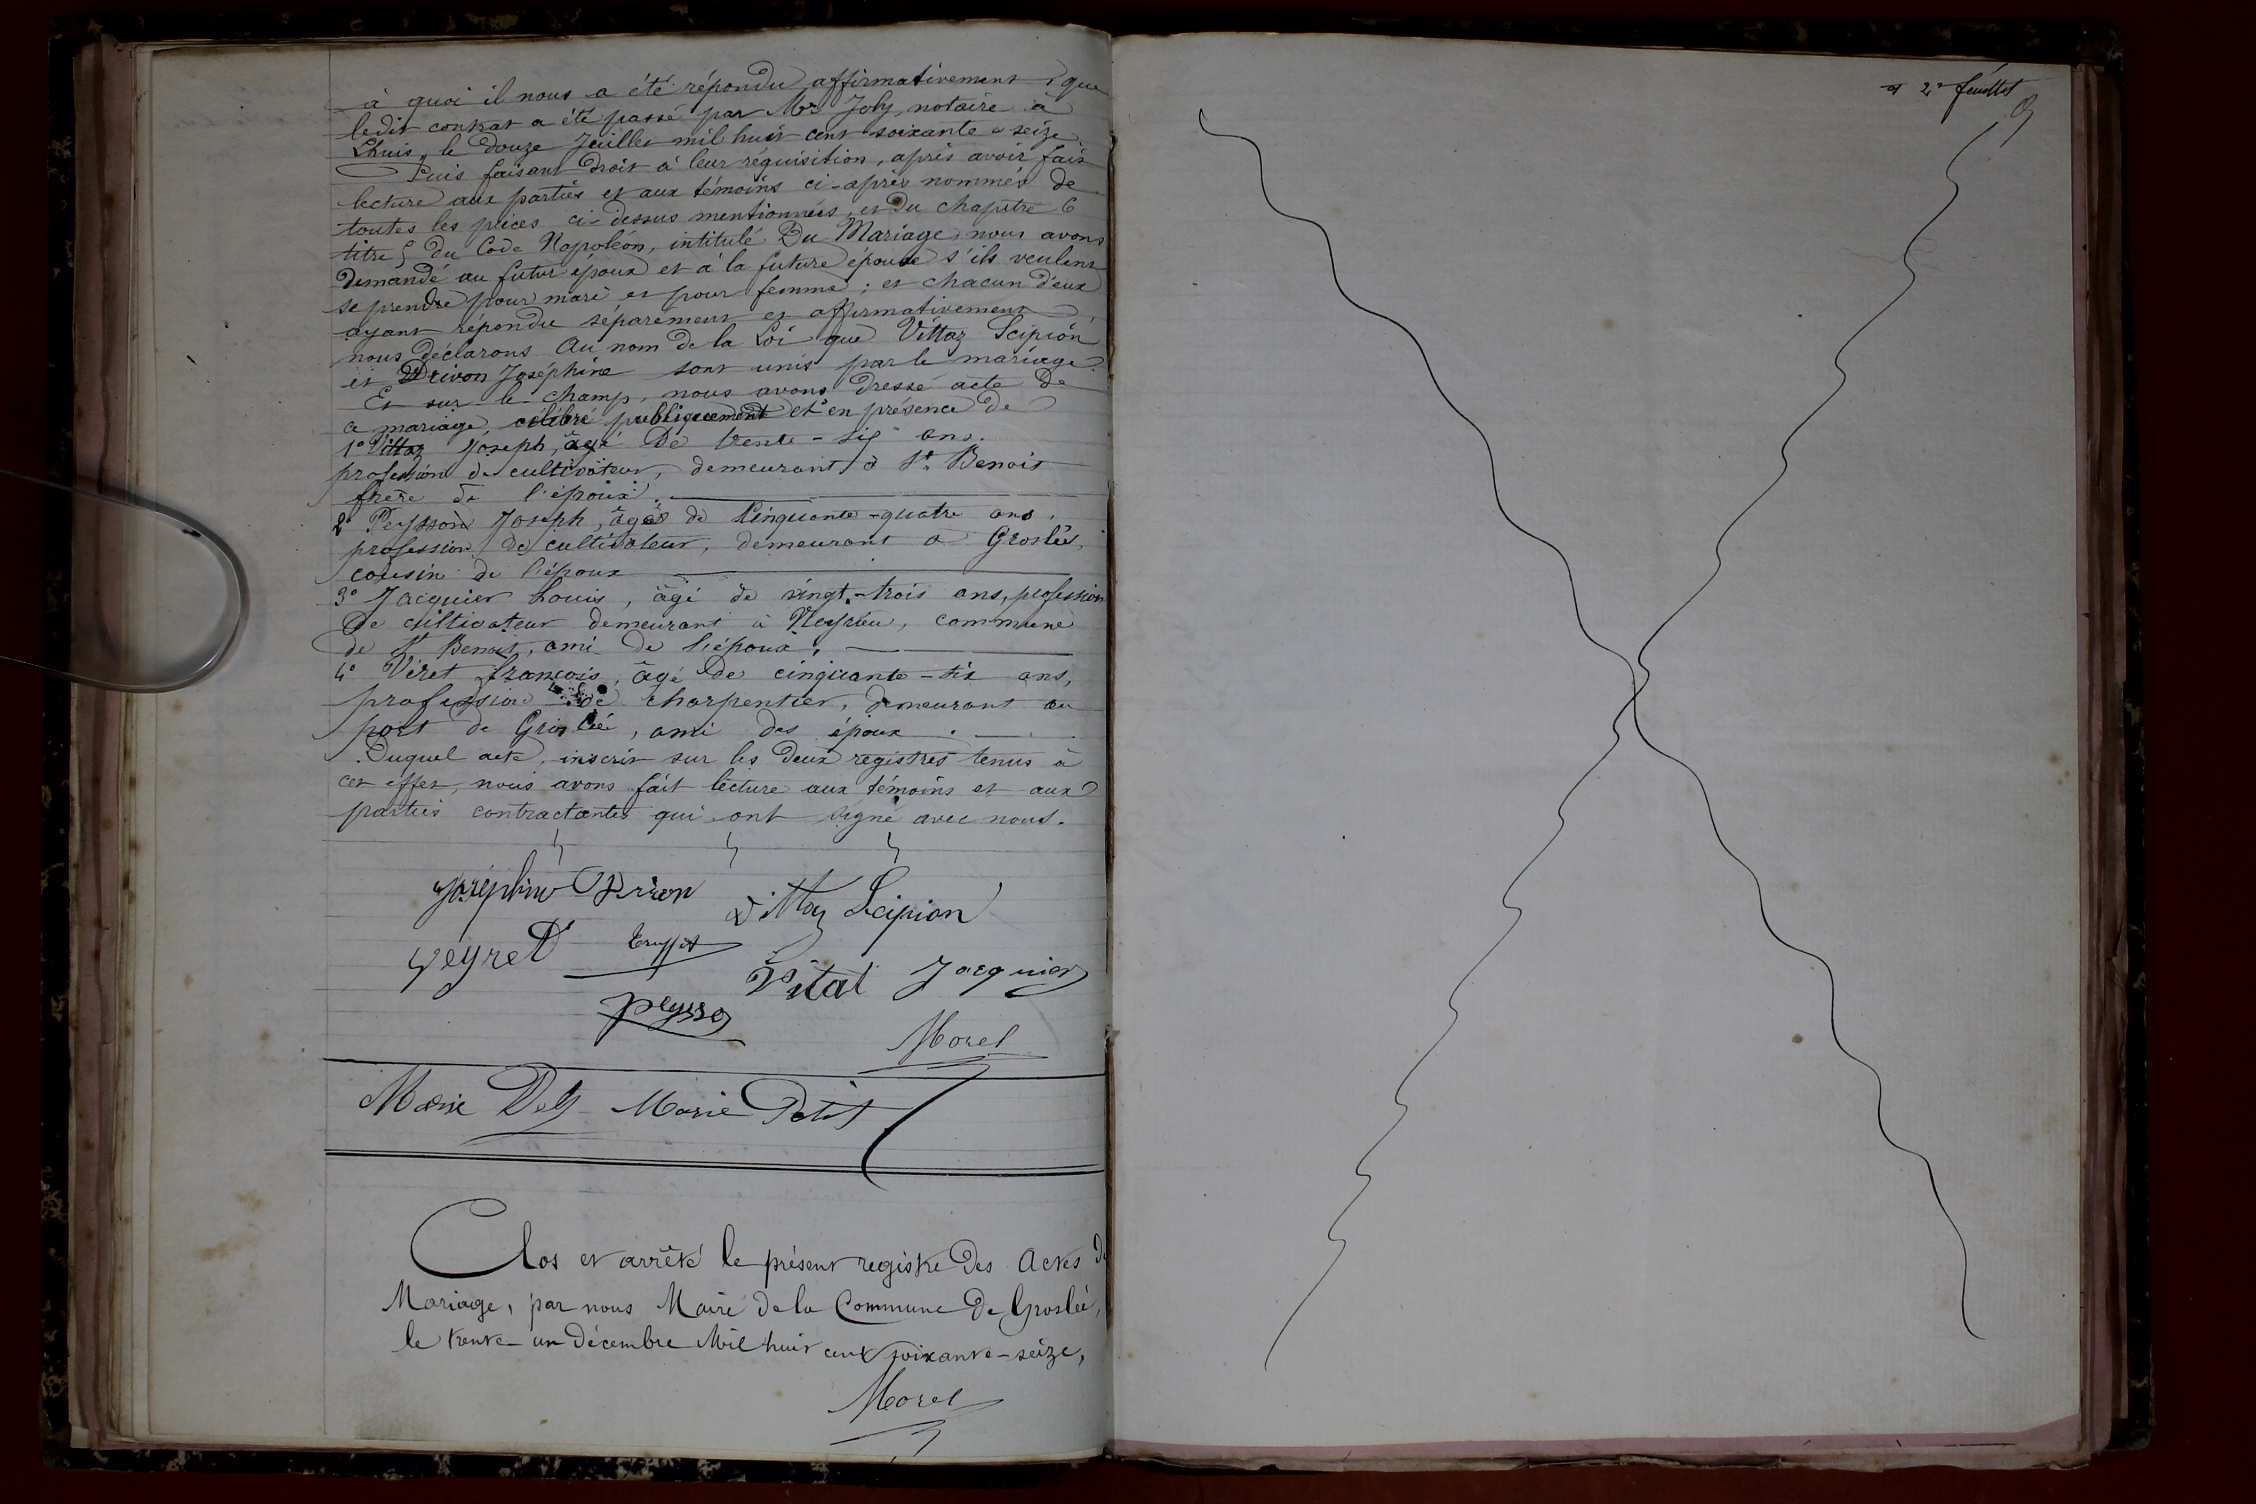 à quoi il nous a été répondu affirmativement & que
ledit contrat a été passé par Mr Joly, notaire à
Lhuis, le douze Juillet mil huit cent soixante & seize.
Puis faisant droit à leur réquisition, après avoir fait
lecture aux parties et aux témoins ci-après nommés de
toutes les pièces ci-dessus mentionnées, et du chapitre 6
titre 5 du Code Napoléon, intitulé Du Mariage, nous avons
demandé au futur époux et à la future épouse s'ils veulent
se prendre pour mari et pour femme ; et chacun d'eux
ayant répondu séparément et affirmativement,
nous déclarons Au nom de la Loi que Vittaz Scipion
et Drivon Joséphine sont unis par le mariage.
Et sur le champ, nous avons dressé acte de
ce mariage, célébré publiquement et en présence de
1° Vittaz Joseph, âgé de trente-six ans.
profession de cultivateur, demeurant à St Benoit
frère de l'époux.
2° Peysson Joseph, âgé de cinquante-quatre ans.
profession de cultivateur, demeurant à Groslée,
cousin de l'époux
3° Jacquier Louis, âgé de vingt-trois ans, profession
de cultivateur demeurant à Neyrieu, commune
de St Benoit, ami de l'époux.
4° Veret françois, âgé de cinquante-six ans,
profession de charpentier, demeurant au
port de Groslée, ami des époux.
Duquel acte, inscrit sur les deux registres tenus à
cet effet, nous avons fait lecture aux témoins et aux
parties contractantes qui ont signé avec nous.
Joséphine Drivon
Vittaz Scipion
veyret
Vital Jacquier
peysson
Morel
Marie Petit
Clos et arrêté le présent registre des Actes de
Mariage, par nous Maire de la Commune de Groslée,
le trente-un décembre Mil huit cent soixante-seize,
Morel
2e feuillet